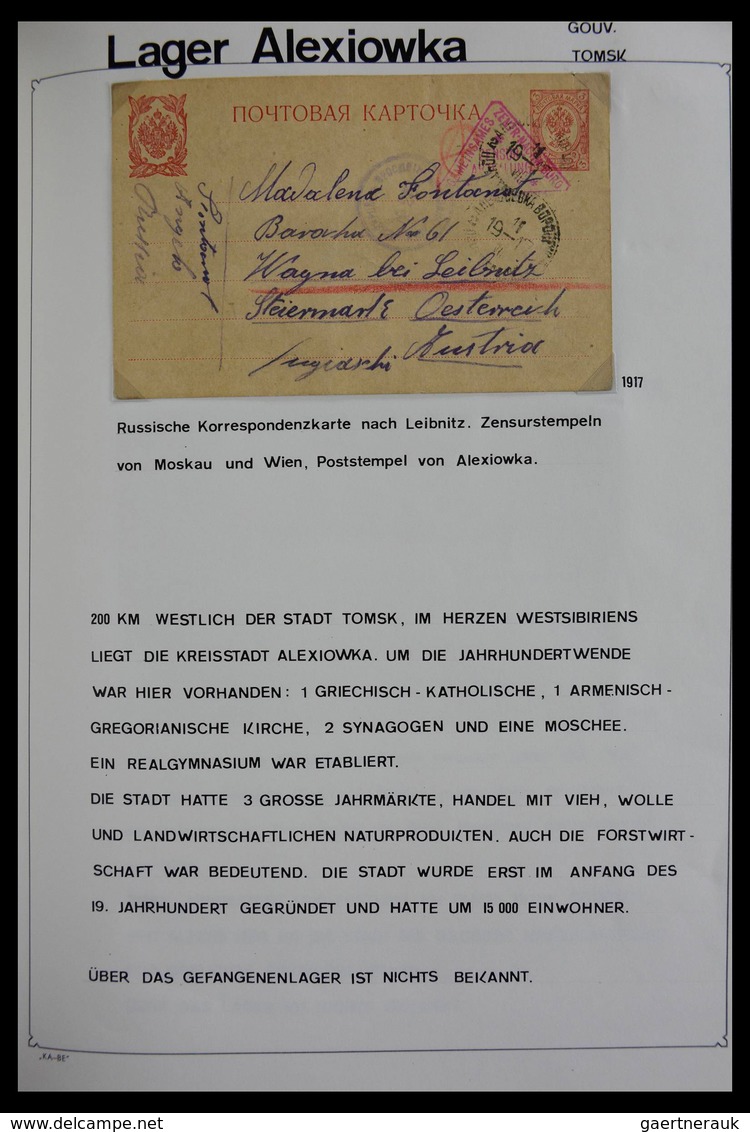 Lager Alexiowka
GOUV.
TOMSK
ПОЧТОВАЯ КАРТОЧКА
Madalena Fontanot
Baracha No 61
Wagna bei Leibnitz
Steiermark Oesterreich
Austria
Fontanot
Angelo
Russia
1917
Russische Korrespondenzkarte nach Leibnitz. Zensurstempeln
von Moskau und Wien, Poststempel von Alexiowka.
200 KM WESTLICH DER STADT TOMSK, IM HERZEN WESTSIBIRIENS
LIEGT DIE KREISSTADT ALEXIOWKA. UM DIE JAHRHUNDERTWENDE
WAR HIER VORHANDEN: 1 GRIECHISCH-KATHOLISCHE, 1 ARMENISCH-
GREGORIANISCHE KIRCHE, 2 SYNAGOGEN UND EINE MOSCHEE.
EIN REALGYMNASIUM WAR ETABLIERT.
DIE STADT HATTE 3 GROSSE JAHRMÄRKTE, HANDEL MIT VIEH, WOLLE
UND LANDWIRTSCHAFTLICHEN NATURPRODUKTEN. AUCH DIE FORSTWIRT-
SCHAFT WAR BEDEUTEND. DIE STADT WURDE ERST IM ANFANG DES
19. JAHRHUNDERT GEGRÜNDET UND HATTE UM 15000 EINWOHNER.
ÜBER DAS GEFANGENENLAGER IST NICHTS BEKANNT.
„KA-BE"
gaertnerauk